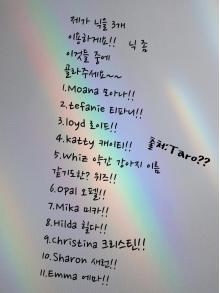 제가 닉을 3개
이용하게요!! 닉 좀
이것들 중에
골라주세요~~
1.Moana 모아나!!
2.tefanie 티파니!!
3.loyd 로이드!!
4.katty 캐이티!!
출처:Taro??
5.Whiz 약간 강아지 이름
같기도한? 위즈!!
6.Opal 오펠!!
7.Mika 미카!!
8.Hilda 힐다!!
9.Christina 크리스틴!!
10.Sharon 섀런!!
11.Emma 에마!!